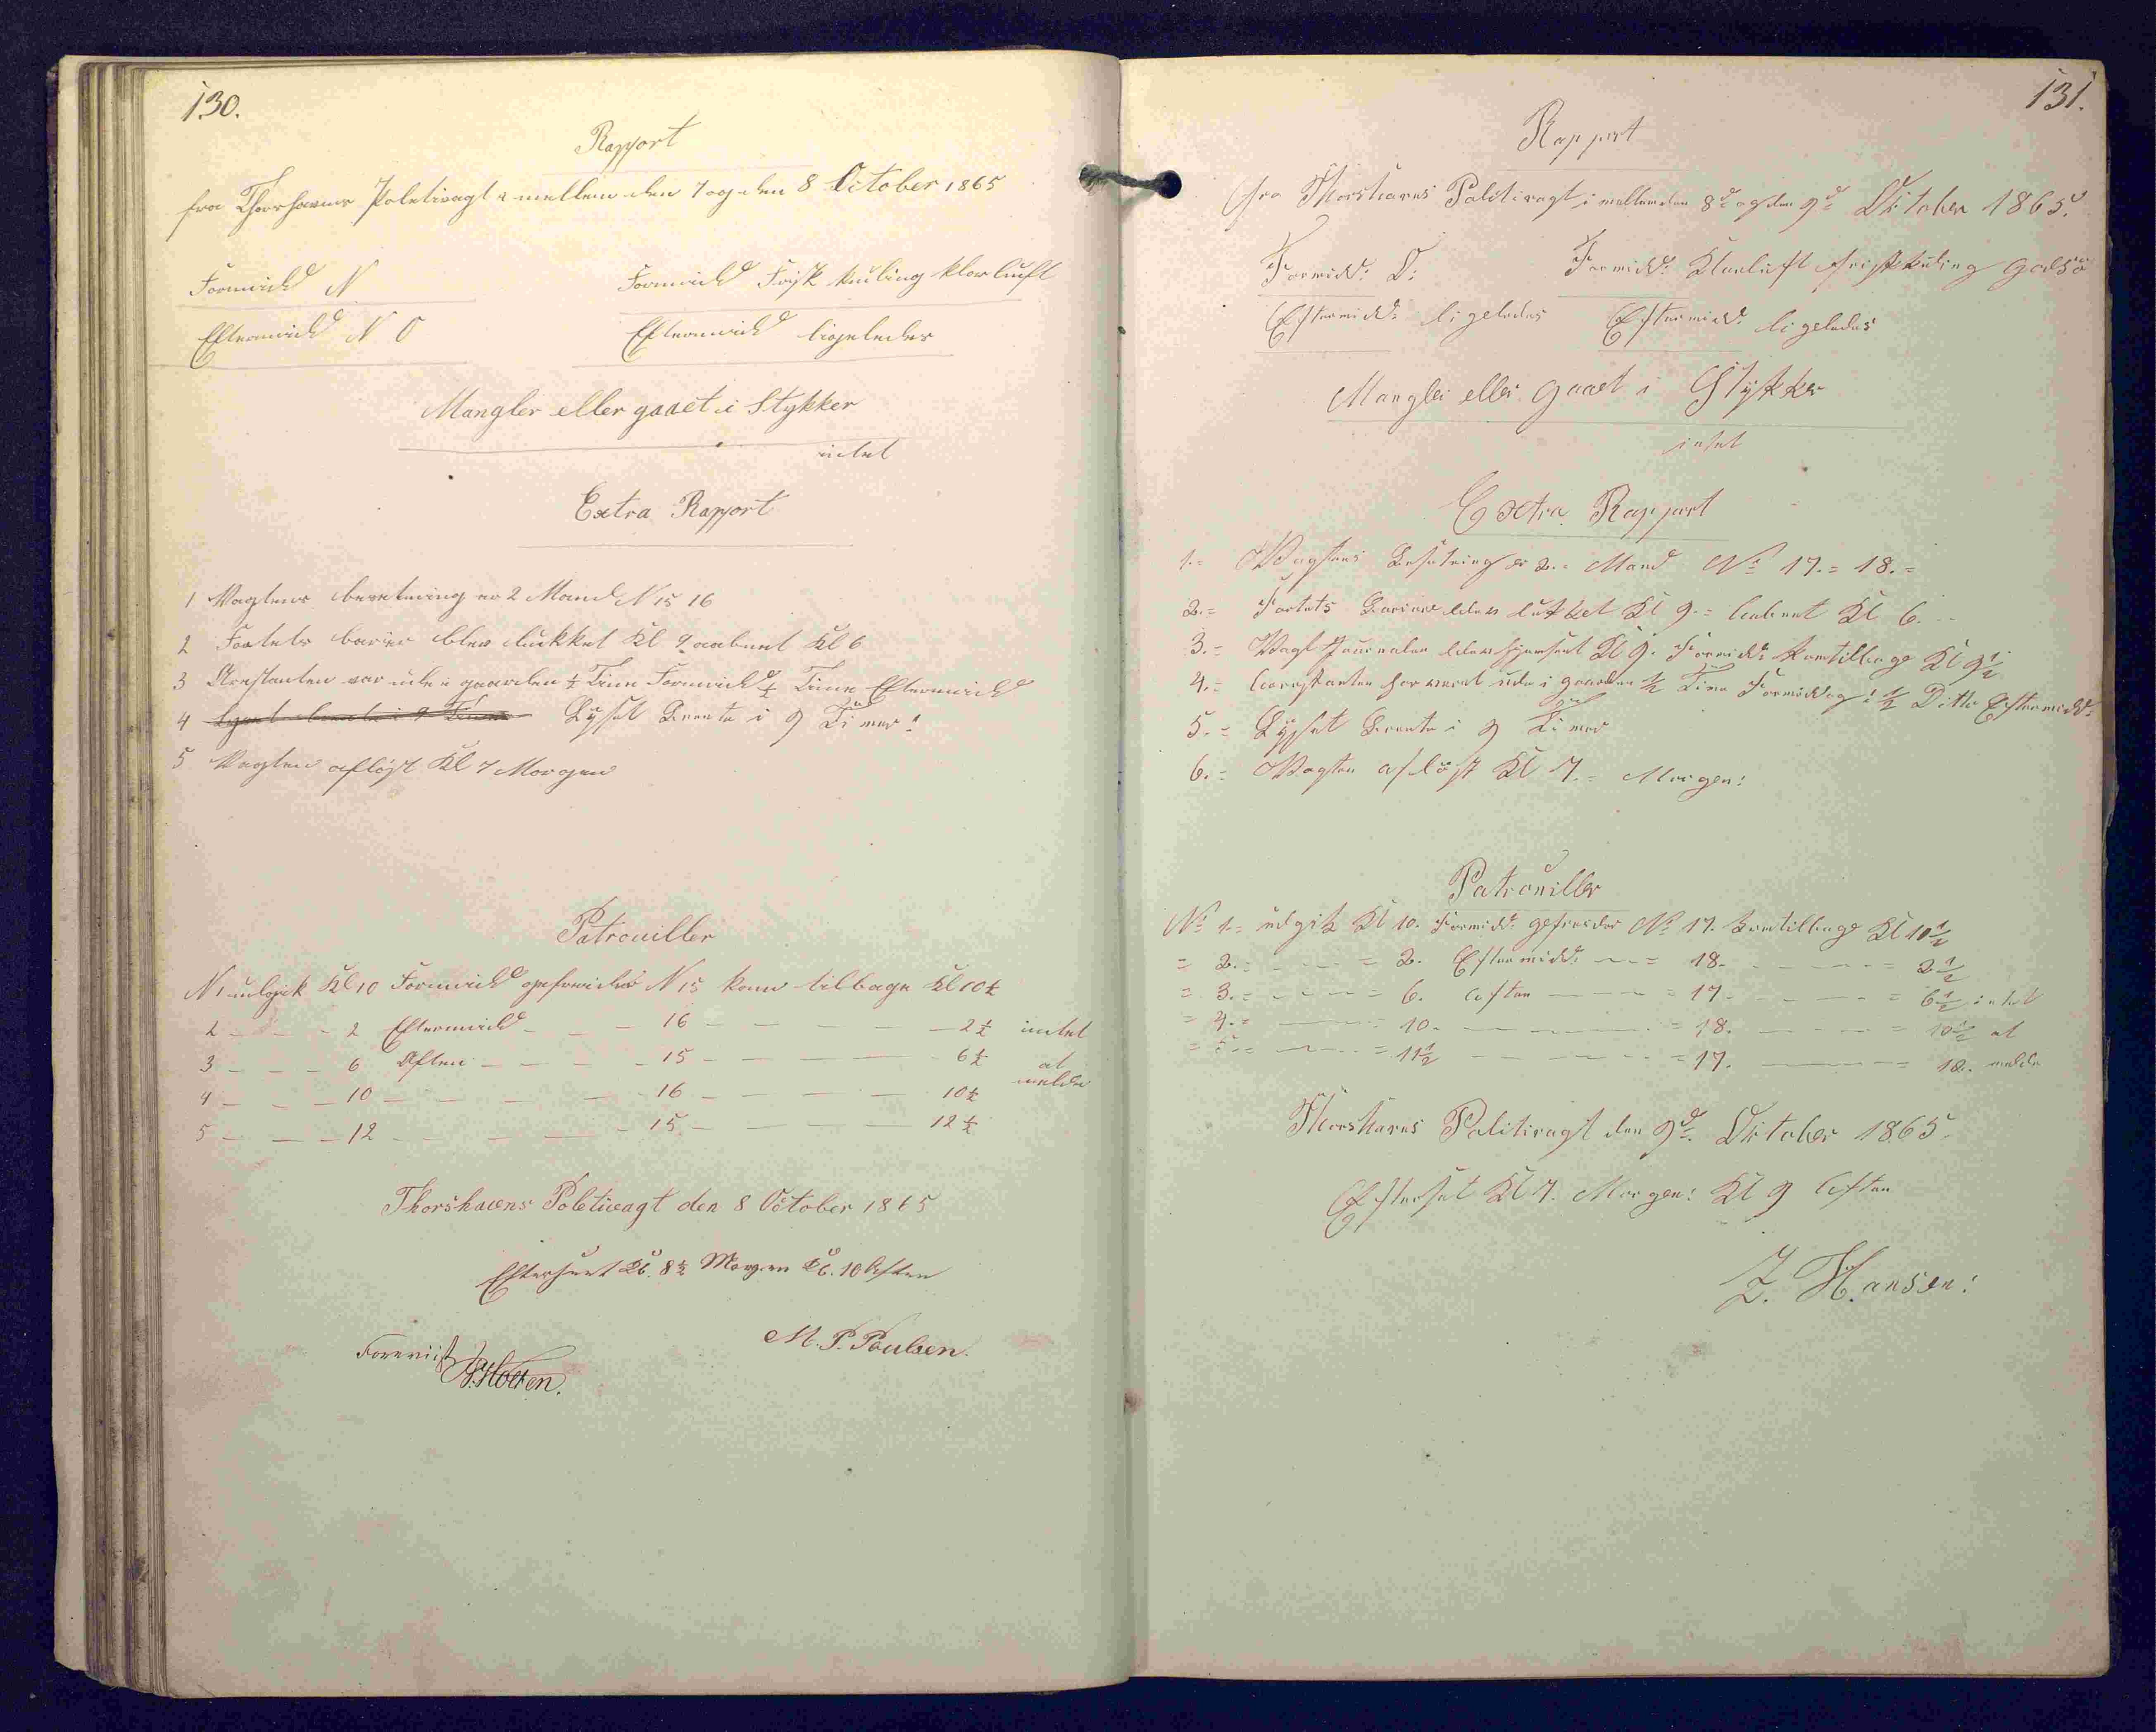 130.
Rapport
fra Thorshavns Poletivagt i mellem den 7 og den 8 October 1865
Formidd N Formidd Frisk kuling klar luft
Eftermidd N O Eftermidd ligeledes
Mangler eller gaaet i Stykker
intet
Extra Rapport
1 Vagtens besetning er 2 Mand N 15 16
2 Fortets barier blev lukket Kl 9 aabnet Kl 6
3 Arestanten var ude i gaarden ½ Time Formidd ½ Time Eftermidd
4 Lyset brente i 9 Timer Lyset Brente i 9 Timer!
5 Vagten afløst Kl 7 Morgen
Patrouiller
N 1 udgik Kl 10 Formidd gefreider N 15 kom tilbage Kl 10½
2 — — - 2 Eftermidd — — - 16 — — — — — 2½ intet
3 — — - 6 Aften — — — - 15 — — — — 6½ at
4 — — — 10 — — — — — 16 — — — — 10½ melde
5 — — — 12 — — — — - 15 — — — — 12½
Thorshavns Poletivagt den 8 October 1865
Efterseet Kl. 8½ Morgen Kl. 10 Aften
M. P. Poulsen.
Foreviist
Holten.
131.
Rapport
fra Thorshavns Politivagt i mellem den 8d og den 9d Oktober 1865.
Formidd: O: Formidd: Klarluft friskkuling
Eftermidd: ligeledes Eftermidd: ligeledes
Mangler eller gaaet i Stykker
intet
Extra Rapport
1.= Vagtens Besetning er 2.= Mand No 17.= 18.=
2.= Fortets Bariere blev lukket Kl 9.= aabnet Kl 6.
3.= Vagt Journalen blev hjemsent Kl 9. Formidd: kom tilbage Kl 9½
4.= Arrestanten har veret ude i gaarden ½ Time Formiddag: ½ Ditto Eftermidd:
5.= Lyset Brente i 9 Timer
6.= Vagten afløst Kl 7.= Morgen:
Patrouiller
No 1.= udgik Kl 10. Formidd: gefreider No 17. kom tilbage Kl 10½
= 2.= - - - = 2. Eftermidd: - - = 18. - - - - = 2½
= 3.= - - - = 6. Aften — — = 17. - - - = 6½ intet
= 4.= — — = 10. — — — = 18. — - - = 10½ at
= 5.= — — = 11½ — - - - = 17. — — = 12. melde
Thorshavns Politivagt den 9d. Oktober 1865.
Efterset Kl 7. Morgen: Kl 9 Aften
Z. Hansen: